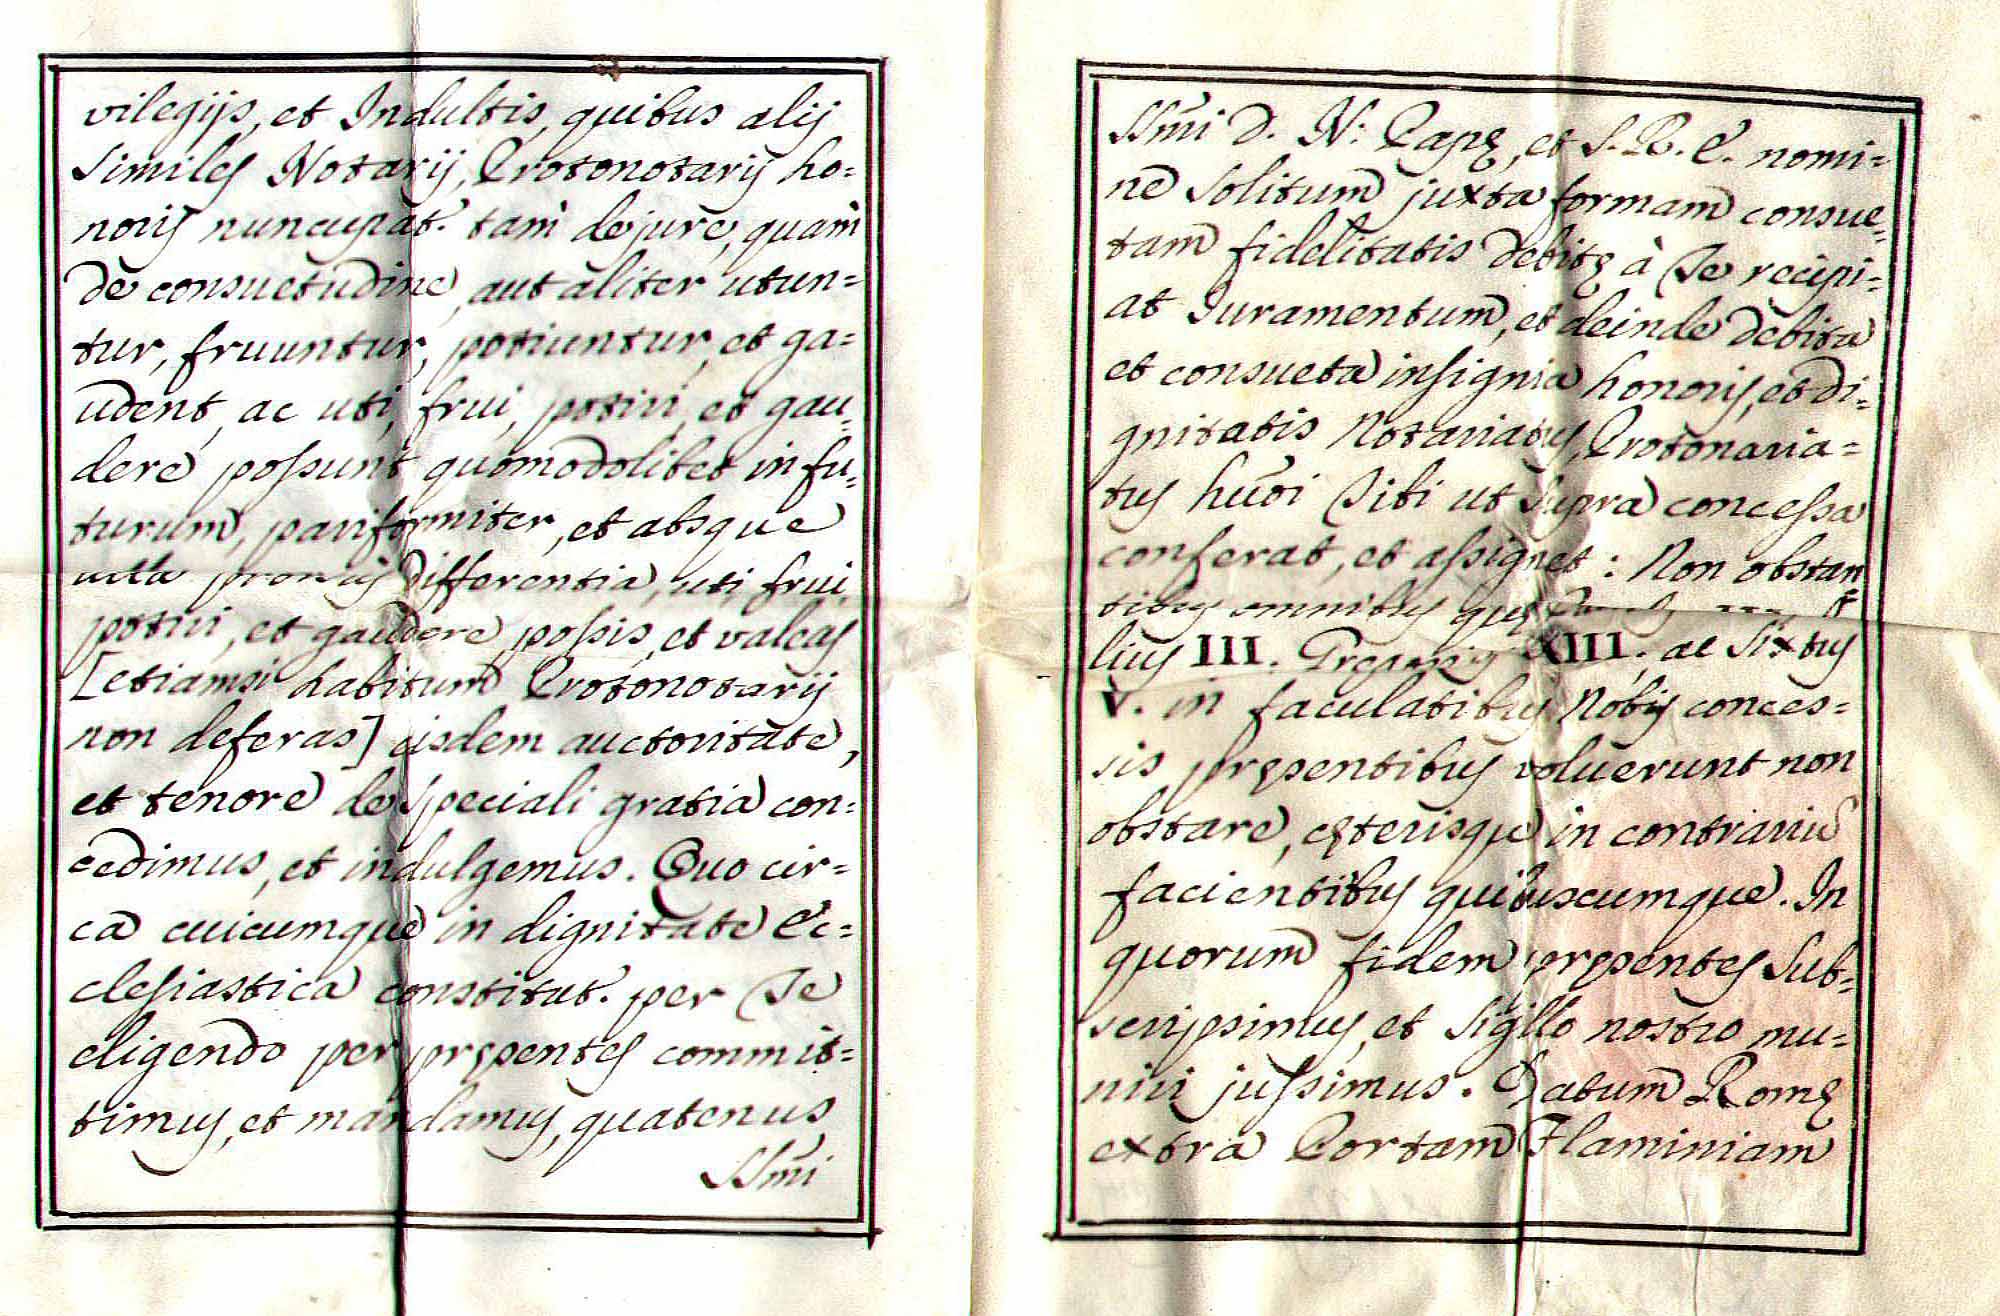 vilegijs, et Indultis, quibus alij
similes Notarij, Protonotarij ho=
noris nuncupat. tam de jure, quàm
de consuetudine, aut aliter utun=
tur, fruuntur, potiuntur, et ga=
udent, ac uti, frui, potiri, et gau=
dere possunt quomodolibet in fu=
turum, pariformiter, et absque
ulla prorsus differentia, uti, frui,
potiri, et gaudere possis, et valeas
[etiamsi habitum Protonotarij
non deferas] eisdem auctoritate,
et tenore de speciali gratia con=
cedimus, et indulgemus. Quo cir=
ca cuicumque in dignitate Ec=
clesiastica constitut. per Te
eligendo per pręsentes commit=
timus, et mandamus, quatenus
SSm̃i
SSm̃i D. N. Papę, et S. R. E. nomi=
ne solitum juxta formam consue=
tam fidelitatis debitę à Te recipi=
at Juramentum, et deinde debita
et consueta insignia honoris, et di=
gnitatis Notariatus, Protonaria=
tus hũoi Tibi ut supra concessa
conferat, et assignet: Non obstan
tibus omnibus quę
lius III. Gregorius XIII. ac Sixtus
V. in facultatibus Nobis conces=
sis pręsentibus voluerunt non
obstare, cęterisque in contrariũ
facientibus quibuscumque. In
quorum fidem pręsentes sub=
scripsimus, et Sigillo nostro mu=
niri jussimus. Datum Romę
extra Portam Flaminiam